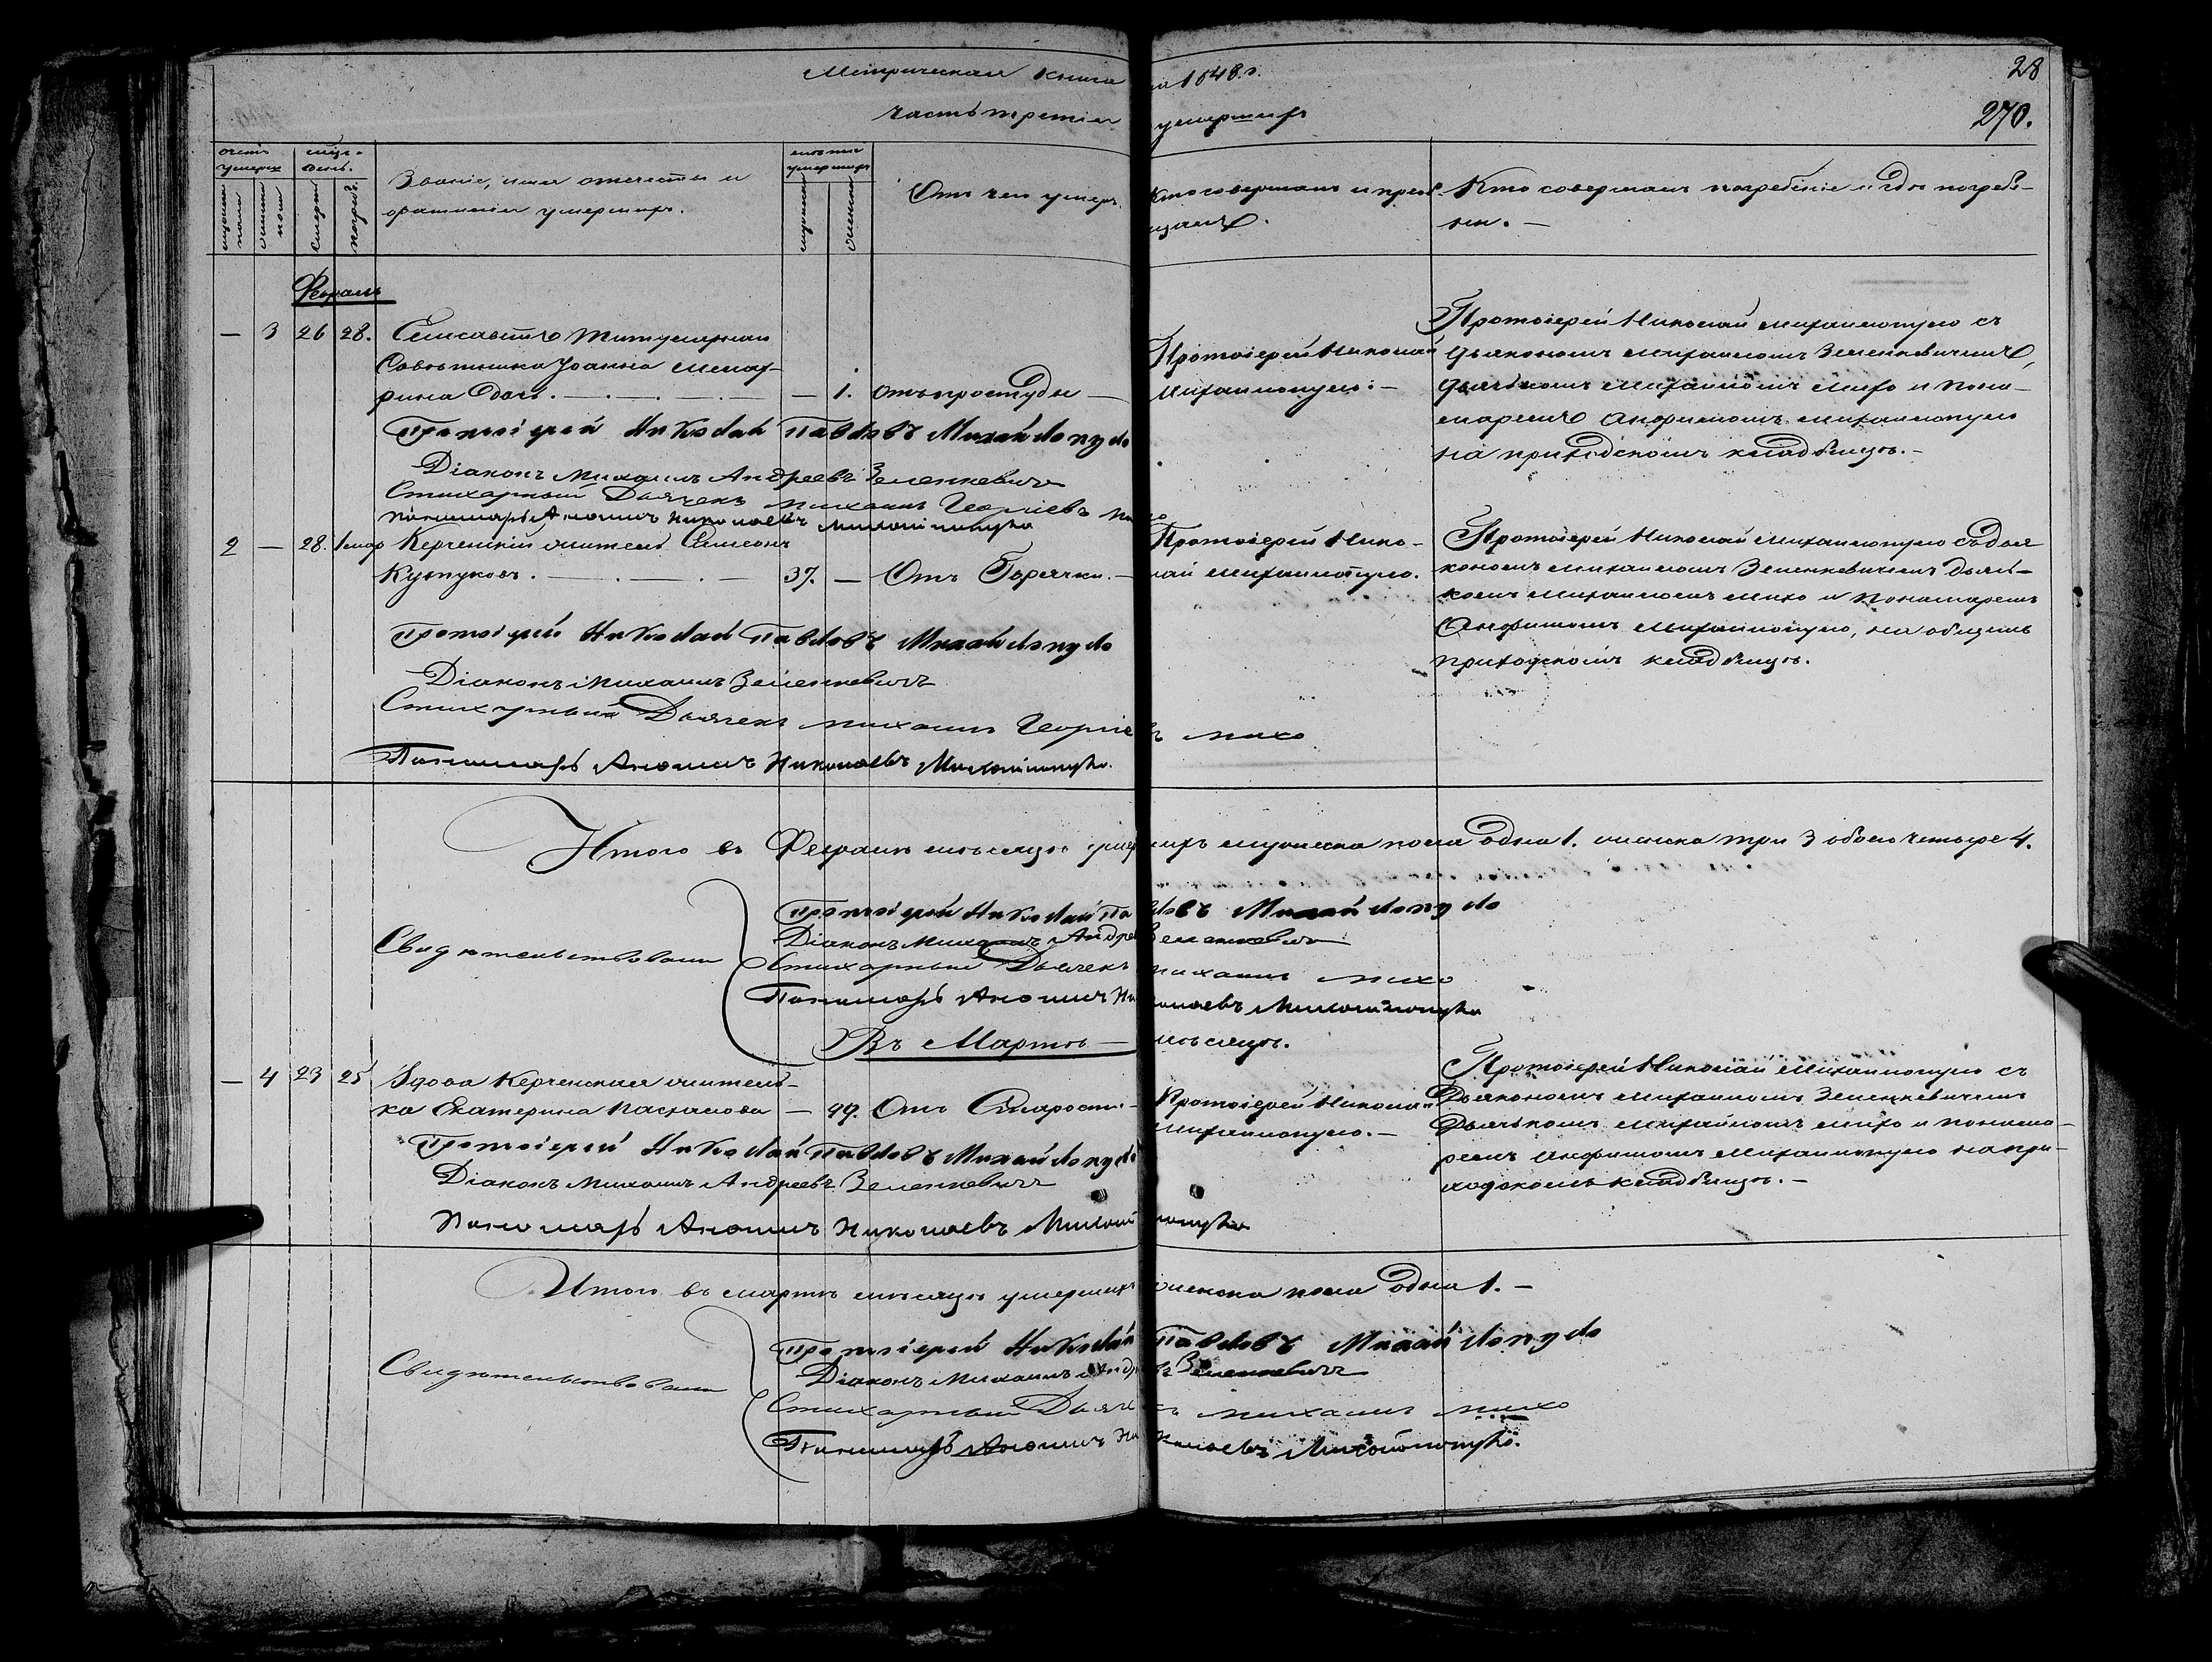 Метрическая книга на 1848. г.
28
часть третія умершихъ
270.
Счетъ умерш
мужеска пола
женска пола
Смерти
погреб.
Званіе, имя отечество и
фамилія умершихъ.
лѣта умершихъ
мужеска
женска
Отъ чего умеръ.
Кто совершалъ погребеніе и гдѣ погребе-
ны. —
Февраль
— 3 26 28. Елисавета Титулярнаго
Совѣтника Іоанна
дочь. — — 1. отъ простуды —
Протоіерей Николай
Михайлопуло. —
Протоіерей Николай Михайлопуло съ
Дьякономъ Михаиломъ Зеленкевичемъ,
Дьячкомъ Михаиломъ Михо и Поно-
маремъ Анфимомъ Михайлопуло
на приходскомъ кладбищѣ. —
Протоіерей Николай Павловъ Михайлопуло
Діаконъ Михаилъ Андреевъ Зеленкевичъ
Стихарный Дьячекъ Михаилъ Георгіевъ Михо
Пономарь Анфимъ Николаевъ Михайлопуло
2 — 28. 1 мар Керченскій житель Симеонъ
37. — Отъ Горячки. —
Протоіерей Нико-
лай Михайлопуло.
Протоіерей Николай Михайлопуло съ Дья
кономъ Михаиломъ Зеленкевичемъ Дьяч-
комъ Михаиломъ Михо и Пономаремъ
Анфимомъ Михайлопуло, на общемъ
приходскомъ кладбищѣ.
Протоіерей Николай Павловъ Михайлопуло
Діаконъ Михаилъ Зеленкевичъ
Стихарный Дьячекъ Михаилъ Георгіевъ Михо
Пономарь Анфимъ Николаевъ Михайлопуло.
Итого въ Февралѣ мѣсяцѣ умершихъ мужеска пола одна 1. женска три 3 обоего четыре 4.
Свидѣтельствовали
Протоіерей Николай Павловъ Михайлопуло
Діаконъ Михаилъ Андреевъ Зеленкевичъ
Стихарный Дьячекъ Михаилъ Михо
Пономарь Анфимъ Николаевъ Михайлопуло
Въ Мартѣ — мѣсяцѣ.
— 4 23 25 Вдова Керченская житель-
ка Екатерина — 99. Отъ Старости. —
Протоіерей Николай
Михайлопуло. —
Протоіерей Николай Михайлопуло съ
Дьякономъ Михаиломъ Зеленкевичемъ
Дьячкомъ Михайломъ Михо и понома-
ремъ Анфимомъ Михайлопуло на при-
ходскомъ кладбищѣ. —
Протоіерей Николай Павловъ Михайлопуло
Діаконъ Михаилъ Андреевъ Зеленкевичъ
Пономарь Анфимъ Николаевъ Михайлопуло
Итого въ мартѣ мѣсяцѣ умершихъ женска пола одна 1. —
Свидѣтельствовали
Протоіерей Николай Павловъ Михайлопуло
Діаконъ Михаилъ Андреевъ Зеленкевичъ
Стихарный Дьячекъ Михаилъ Михо
Пономарь Анфимъ Николаевъ Михайлопуло.